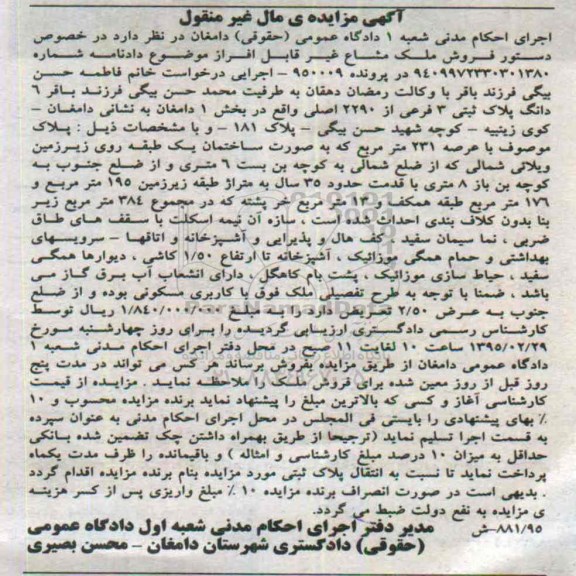 آگهی مزایده ی مال غیر منقول
اجرای احکام مدنی شعبه ۱ دادگاه عمومی (حقوقی) دامغان در نظر دارد در خصوص
دستور فروش ملک مشاع غیر قابل افراز موضوع دادنامه شماره
۹۴۰۹۹۷۲۳۳۰۳۰۱۳۸۰ در پرونده ۹۵۰۰۰۹ – اجرایی درخواست خانم فاطمه حسن
بیگی فرزند باقر با وکالت رمضان دهقان به طرفیت محمد حسن بیگی فرزند باقر ۶
دانگ پلاک ثبتی ۳ فرعی از ۲۲۹۰ اصلی واقع در بخش ۱ دامغان به نشانی دامغان –
کوی زینبیه – کوچه شهید حسن بیگی – پلاک ۱۸۱ – و با مشخصات ذیل : پلاک
موصوف با عرصه ۲۳۱ متر مربع که به صورت ساختمان یک طبقه روی زیرزمین
ویلائی شمالی که از ضلع شمالی به کوچه بن بست ۶ متری و از ضلع جنوب به
کوچه بن باز ۸ متری با قدمت حدود ۳۵ سال به متراژ طبقه زیرزمین ۱۹۵ متر مربع و
۱۷۶ متر مربع طبقه همکف و ۱۳ متر مربع خر پشته که در مجموع ۳۸۴ متر مربع زیر
بنا بدون کلاف بندی احداث شده است ، سازه آن نیمه اسکلت با سقف های طاق
ضربی ، نما سیمان سفید ، کف هال و پذیرایی و آشپزخانه و اتاقها – سرویسهای
بهداشتی و حمام همگی موزائیک ، آشپزخانه تا ارتفاع ۱/۵۰ کاشی ، دیوارها همگی
سفید ، حیاط سازی موزائیک ، پشت بام کاهگل ، دارای انشعاب آب برق گاز می
باشد ، ضمنا با توجه به طرح تفصیلی ملک فوق با کاربری مسکونی بوده و از ضلع
جنوب به عرض ۲/۵۰ تعریض دارد را به مبلغ ۱/۸۴۰/۰۰۰/۰۰۰ ریال توسط
کارشناس رسمی دادگستری ارزیابی گردیده را برای روز چهارشنبه مورخ
۱۳۹۵/۰۲/۲۹ ساعت ۱۰ لغایت ۱۱ صبح در محل دفتر اجرای احکام مدنی شعبه ۱
دادگاه عمومی دامغان از طریق مزایده بفروش برساند هر کس می تواند در مدت پنج
روز قبل از روز معین شده برای فروش ملک را ملاحظه نماید . مزایده از قیمت
کارشناسی آغاز و کسی که بالاترین مبلغ را پیشنهاد نماید برنده مزایده محسوب و ۱۰
٪ بهای پیشنهادی را بایستی فی المجلس در محل اجرای احکام مدنی به عنوان سپرده
به قسمت اجرا تسلیم نماید (ترجیحا از طریق بهمراه داشتن چک تضمین شده بانکی
حداقل به میزان ۱۰ درصد مبلغ کارشناسی و امثاله ) و باقیمانده را ظرف مدت یکماه
پرداخت نماید تا نسبت به انتقال پلاک ثبتی مورد مزایده بنام برنده مزایده اقدام گردد
. بدیهی است در صورت انصراف برنده مزایده ۱۰ ٪ مبلغ واریزی پس از کسر هزینه
ی مزایده به نفع دولت ضبط می گردد.
۸۸۱/۹۵–ش مدیر دفتر اجرای احکام مدنی شعبه اول دادگاه عمومی
(حقوقی) دادگستری شهرستان دامغان – محسن بصیری